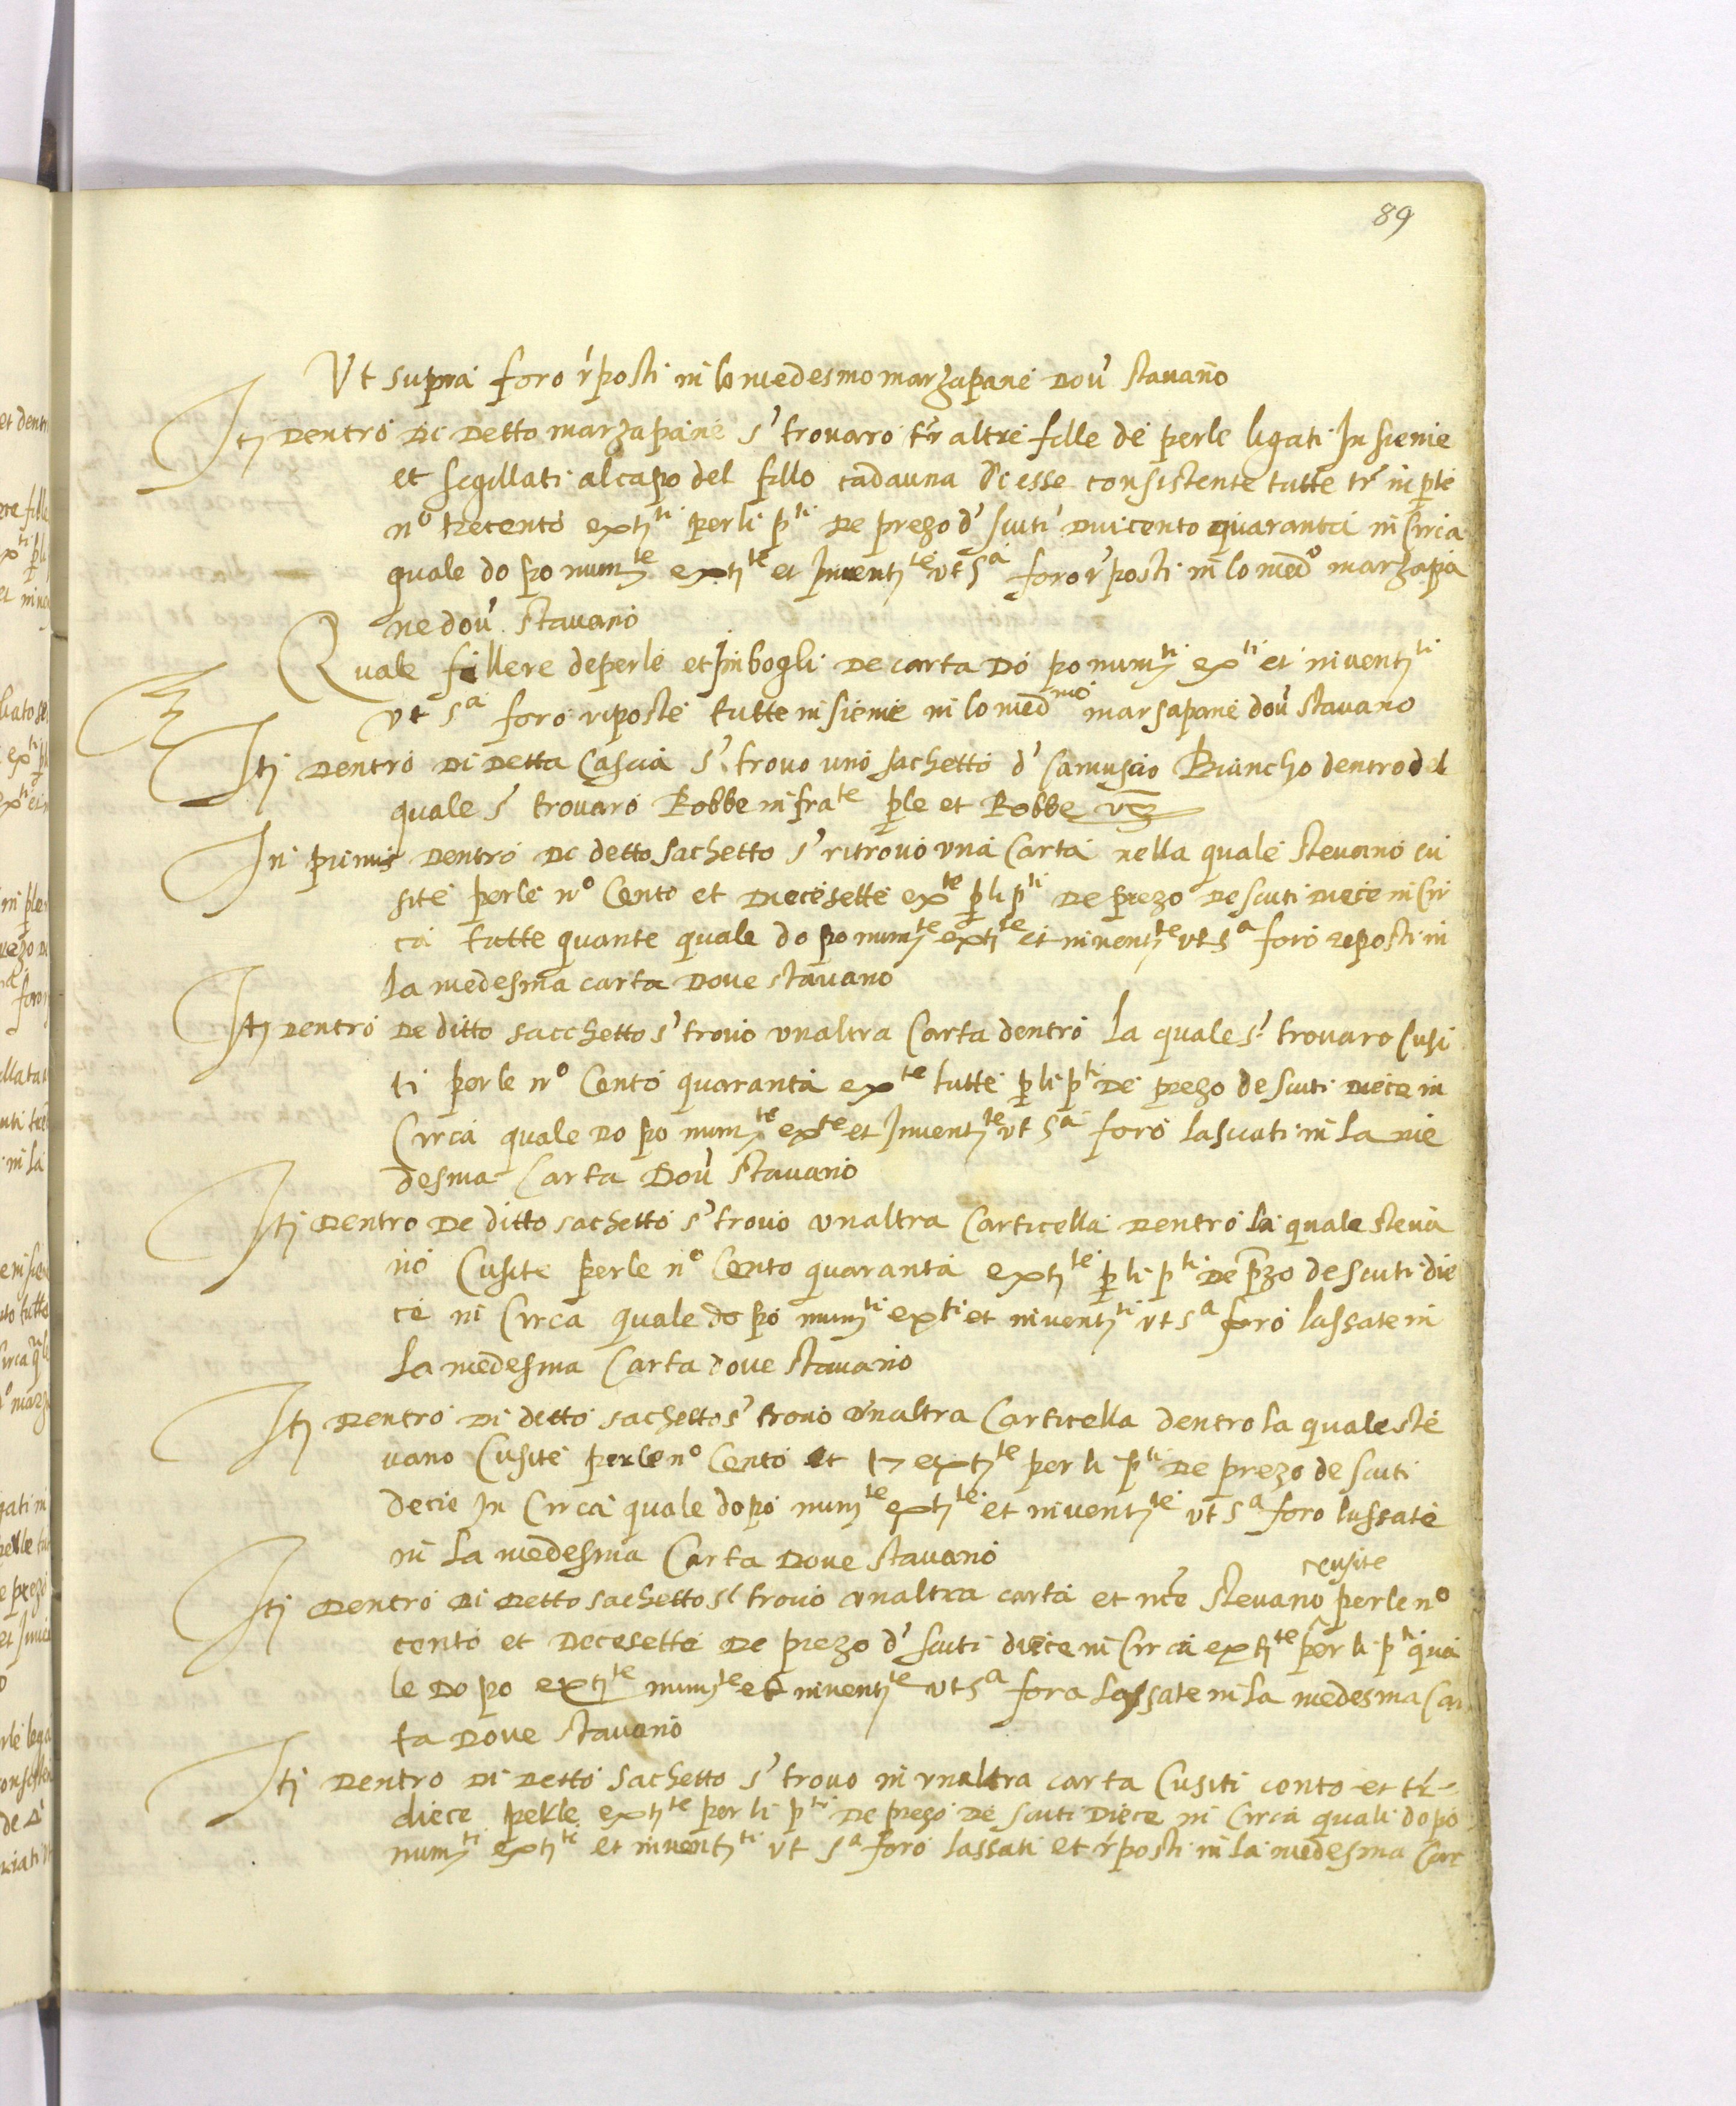 89
Ut supra foro r'posti in lo medesmo marzapane dou' stavano
Itj dentro di detto marzapane s' trovaro tr' altre fille de perle ligati insieme
et sigillati al capo del fillo cadauna di esse consistente tutte tr' in ple
nº trecento extj ti per li p ti de prezo d' scuti duicento quaranta in circa
quale dopo num te extj te et inventj te ut s a foro r'posti in lo med o marzapa
ne dou' stavano
Quale fillere de perle et inbogli de carta dopo num ti ex ti et inventj ti
ut s a foro riposte tutte insieme in lo med mo marsapane dou' stavano
Itj dentro di detta cascia s' trovo uno sachetto d' camuscio biancho dentro del
quale s' trovaro robbe infra te ple et robbe vz
In primis dentro di detto sachetto s' ritrovò una carta nella quale stevano cu
site perle nº cento et diecesette ex te p li p ti de prezo de scuti diece in cir
ca tutte quante quale dopo num te extj te et inventj te ut s a foro reposti in
la medesma carta dove stavano
Itj dentro de ditto sacchetto s' trovò unaltra carta dentro la quale s' trovaro cusi
ti perle nº cento quaranta ex te tutte p li p ti de prezo de scuti diece in
circa quale dopo num te ex te et inventj te ut s a foro lasciati in la me
desma carta dou' stavano
Itj dentro de ditto sachetto s' trovò unaltra carticella dentro la quale steva
no cusite perle nº cento quaranta extj te p li p ti de pzo de scuti die
ce in circa quale dopo num ti ex ti et inventj ti ut s a foro lassate in
la medesma carta dove stavano
Itj dentro di ditto sachetto s' trovò unaltra carticella dentro la quale ste
vano cusite perle nº cento et 17 extj te per li p ti de prezo de scuti
decie in circa quale dopo num te extj te et inventj te ut s a foro lassate
in la medesma carta dove stavano
cusite
Itj dentro di detto sachetto s' trovò unaltra carta et nce stevano perle nº
cento et decesette de prezo d' scuti diece in circa extj te per li p ti qua
le dopo extj te num te et inventj te ut s a fora lassate in la medesma car
ta dove stavano
Itj dentro di detto sachetto s' trovo in unaltra carta cusiti cento et tr'
diece perle extj te per li p ti de prezo de scuti diece in circa quali dopo
num ti extj ti et inventj ti ut s a foro lassati et r'posti in la medesma car